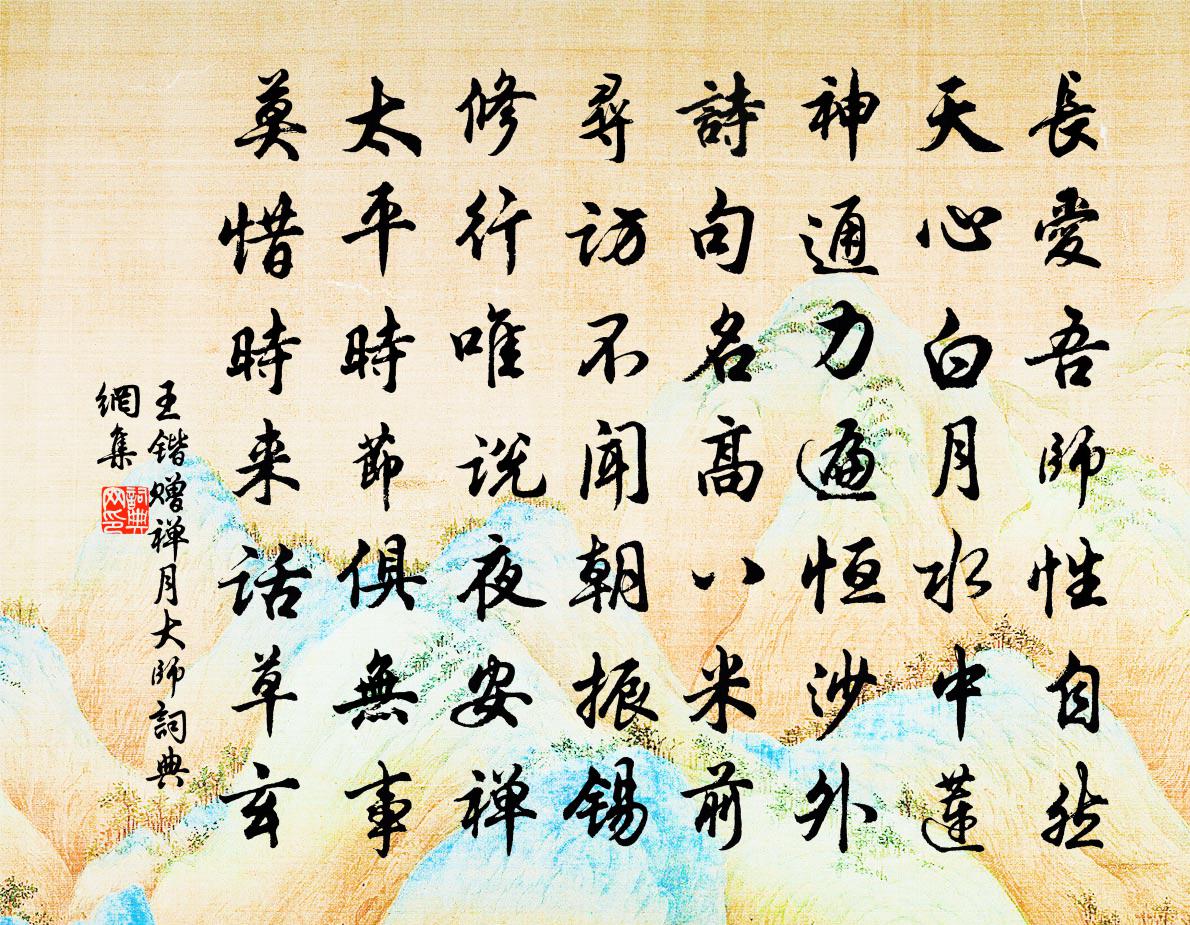 長愛吾師性自然
天心白月水中蓮
神通力遍恒沙外
詩句名高八米前
尋訪不聞朝振錫
修行唯说夜安禅
太平時節俱無事
莫惜時来話草玄
王鍇赠禅月大師詞典
網集
詞典
网印